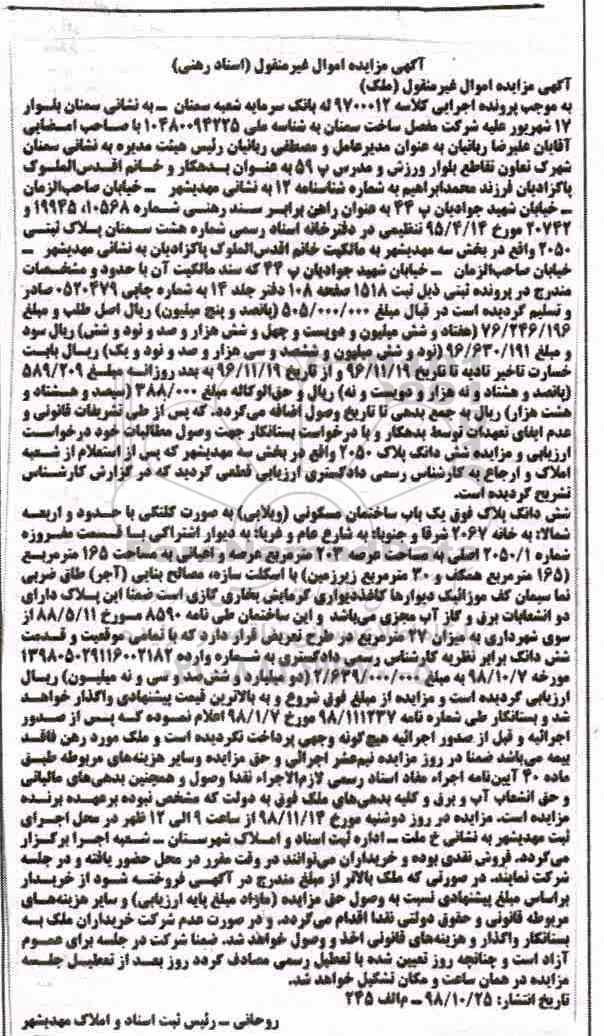 آگهی مزایده اموال غیرمنقول (اسناد رهنی)
آگهی مزایده اموال غیرمنقول (ملک)
به موجب پرونده اجرایی کلاسه ۹۷۰۰۰۱۲ له بانک سرمایه شعبه سمنان ـ به نشانی سمنان بلوار
۱۷ شهریور علیه شرکت مفصل ساخت سمنان به شناسه ملی ۱۰۴۸۰۰۹۴۲۲۵ با صاحب امضایی
آقایان علیرضا ربانیان به عنوان مدیرعامل و مصطفی ربانیان رئیس هیئت مدیره به نشانی سمنان
شهرک تعاون تقاطع بلوار ورزش و مدرس پ ۵۹ به عنوان بدهکار و خانم اقدس‌الملوک
پاکزادیان فرزند محمدابراهیم به شماره شناسنامه ۱۲ به نشانی مهدیشهر ـ خیابان صاحب‌الزمان
ـ خیابان شهید جوادیان پ ۴۴ به عنوان راهن برابر سند رهنی شماره ۱۰۵۶۸، ۱۹۹۴۵ و
۲۰۷۴۲ مورخ ۹۵/۴/۱۴ تنظیمی در دفترخانه اسناد رسمی شماره هشت سمنان پلاک ثبتی
۲۰۵۰ واقع در بخش سه مهدیشهر به مالکیت خانم اقدس‌الملوک پاکزادیان به نشانی مهدیشهر ـ
خیابان صاحب‌الزمان ـ خیابان شهید جوادیان پ ۴۴ که سند مالکیت آن با حدود و مشخصات
مندرج در پرونده ثبتی ذیل ثبت ۱۵۱۸ صفحه ۱۰۸ دفتر جلد ۱۴ به شماره چاپی ۰۵۲۰۴۷۹ صادر
و تسلیم گردیده است در قبال مبلغ ۵۰۵/۰۰۰/۰۰۰ (پانصد و پنج میلیون) ریال اصل طلب و مبلغ
۷۶/۲۴۶/۱۹۶ (هفتاد و شش میلیون و دویست و چهل و شش هزار و صد و نود و شش) ریال سود
و مبلغ ۹۶/۶۳۰/۱۹۱ (نود و شش میلیون و ششصد و سی هزار و صد و نود و یک) ریال بابت
خسارت تاخیر تادیه تا تاریخ ۹۶/۱۱/۱۹ و از تاریخ ۹۶/۱۱/۱۹ به بعد روزانه مبلغ ۵۸۹/۲۰۹
(پانصد و هشتاد و نه هزار و دویست و نه) ریال و حق‌الوکاله مبلغ ۳۸۸/۰۰۰ (سیصد و هشتاد و
هشت هزار) ریال به جمع بدهی تا تاریخ وصول اضافه می‌گردد. که پس از طی تشریفات قانونی و
عدم ایفای تعهدات توسط بدهکار و با درخواست بستانکار جهت وصول مطالبات خود درخواست
ارزیابی و مزایده شش دانگ پلاک ۲۰۵۰ واقع در بخش سه مهدیشهر که پس از استعلام از شعبه
املاک و ارجاع به کارشناس رسمی دادگستری ارزیابی قطعی گردید که در گزارش کارشناس
تشریح گردیده است.
شش دانگ پلاک فوق یک باب ساختمان مسکونی (ویلایی) به صورت کلنگی با حدود و اربعه
شمالا: به خانه ۲۰۶۷ شرقا و جنوبا: به شارع عام و غربا: به دیوار اشتراکی با قسمت مفروزه
شماره ۲۰۵۰/۱ اصلی به مساحت عرصه ۲۰۳ مترمربع عرصه و اعیانی به مساحت ۱۶۵ مترمربع
(۱۶۵ مترمربع همکف و ۳۰ مترمربع زیرزمین) با اسکلت سازه، مصالح بنایی (آجر) طاق ضربی
نما سیمان کف موزائیک دیوارها کاغذدیواری گرمایش بخاری گازی است ضمنا این پلاک دارای
دو انشعابات برق و گاز آب مجزی می‌باشد و این ساختمان طی نامه ۸۵۹۰ مورخ ۸۸/۵/۱۱ از
سوی شهرداری به میزان ۲۷ مترمربع در طرح تعریض قرار دارد که با تمامی موقعیت و قدمت
شش دانگ برابر نظریه کارشناس رسمی دادگستری به شماره وارده ۱۳۹۸۰۵۰۲۹۱۱۶۰۰۲۱۸۲
مورخه ۹۸/۱۰/۷ به مبلغ ۲/۶۳۹/۰۰۰/۰۰۰ (دو میلیارد و شش‌صد و سی و نه میلیون) ریال
ارزیابی گردیده است و مزایده از مبلغ فوق شروع و به بالاترین قیمت پیشنهادی واگذار خواهد
شد و بستانکار طی شماره نامه ۹۸/۱۱۱۲۳۷ مورخ ۹۸/۱/۷ اعلام نموده که پس از صدور
اجرائیه و قبل از صدور اجرائیه هیچ‌گونه وجهی پرداخت نگردیده است و ملک مورد رهن فاقد
بیمه می‌باشد ضمنا در روز مزایده نیم‌عشر اجرائی و حق مزایده وسایر هزینه‌های مربوطه طبق
ماده ۴۰ آیین‌نامه اجراء مفاد اسناد رسمی لازم‌الاجراء نقدا وصول و همچنین بدهی‌های مالیاتی
و حق انشعاب آب و برق و کلیه بدهی‌های ملک فوق به دولت که مشخص نبوده برعهده برنده
مزایده است. مزایده در روز دوشنبه مورخ ۹۸/۱۱/۱۴ از ساعت ۹ الی ۱۲ ظهر در محل اجرای
ثبت مهدیشهر به نشانی خ ملت ـ اداره ثبت اسناد و املاک شهرستان ـ شعبه اجرا برگزار
می‌گردد. فروش نقدی بوده و خریداران می‌توانند در وقت مقرر در محل حضور یافته و در جلسه
شرکت نمایند. در صورتی که ملک بالاتر از مبلغ مندرج در آگهی فروخته شود از خریدار
براساس مبلغ پیشنهادی نسبت به وصول حق مزایده (مازاد مبلغ پایه ارزیابی) و سایر هزینه‌های
مربوطه قانونی و حقوق دولتی نقدا اقدام می‌گردد. و در صورت عدم شرکت خریداران ملک به
بستانکار واگذار و هزینه‌های قانونی اخذ و وصول خواهد شد. ضمنا شرکت در جلسه برای عموم
آزاد است و چنانچه روز تعیین شده با تعطیل رسمی مصادف گردد روز بعد از تعطیل جلسه
مزایده در همان ساعت و مکان تشکیل خواهد شد.
تاریخ انتشار: ۹۸/۱۰/۲۵ ـ م‌الف ۲۴۵
روحانی ـ رئیس ثبت اسناد و املاک مهدیشهر